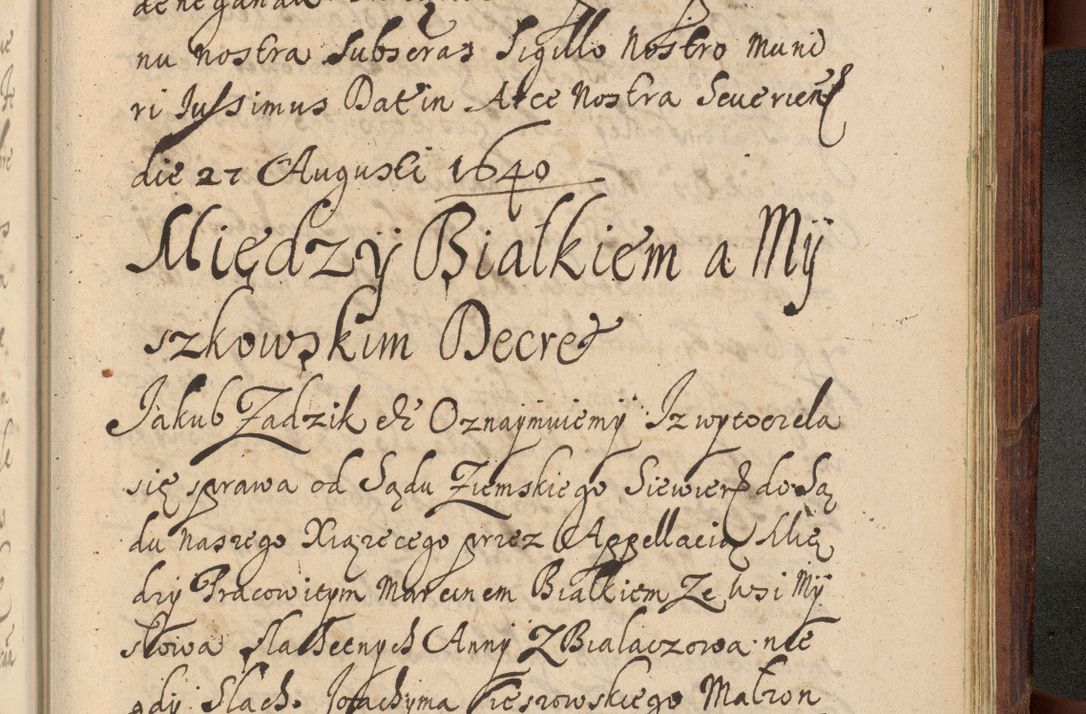 nu nostra Subseras Sigillo Nostro Muni
ri Iussimus Dat in Arce Nostra Seuerien
die 27 Augusti 1640
Między Białkiem a My
szkowskim Decret
Jakub Zadzik etc Oznaymuiemy Iz wytoczela
się sprawa od Sądu Ziemskiego Siewier do Są
du naszego Xiązecego przez Appellacią Mię
dzy Pracowitym Marcinem Białkiem Ze wsi My
słowa slachetnych Anny Z Bialaczowa nie
gdy Slach. Joachyma Cieszowskiego Malzon